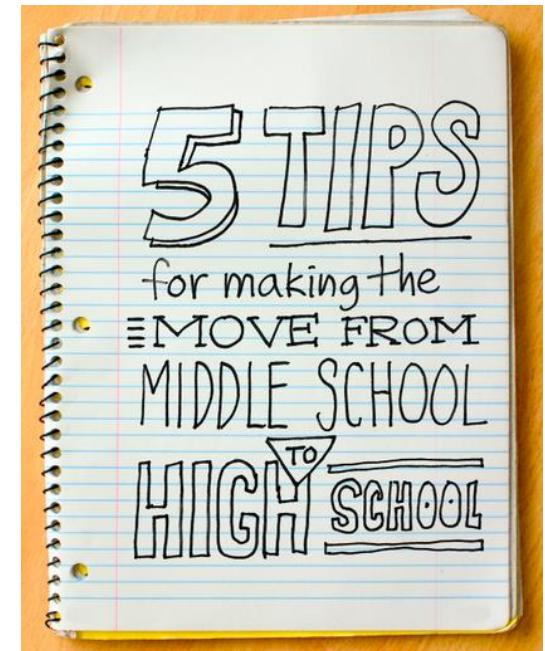 5 TIPS
for making the
MOVE FROM
MIDDLE SCHOOL
TO
HIGH SCHOOL